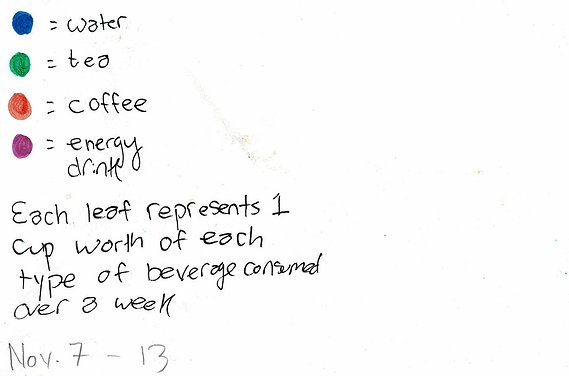 = water
= tea
= coffee
= energy
drink
Each leaf represents 1
cup worth of each
type of beverage consumed
over a week
Nov. 7 - 13